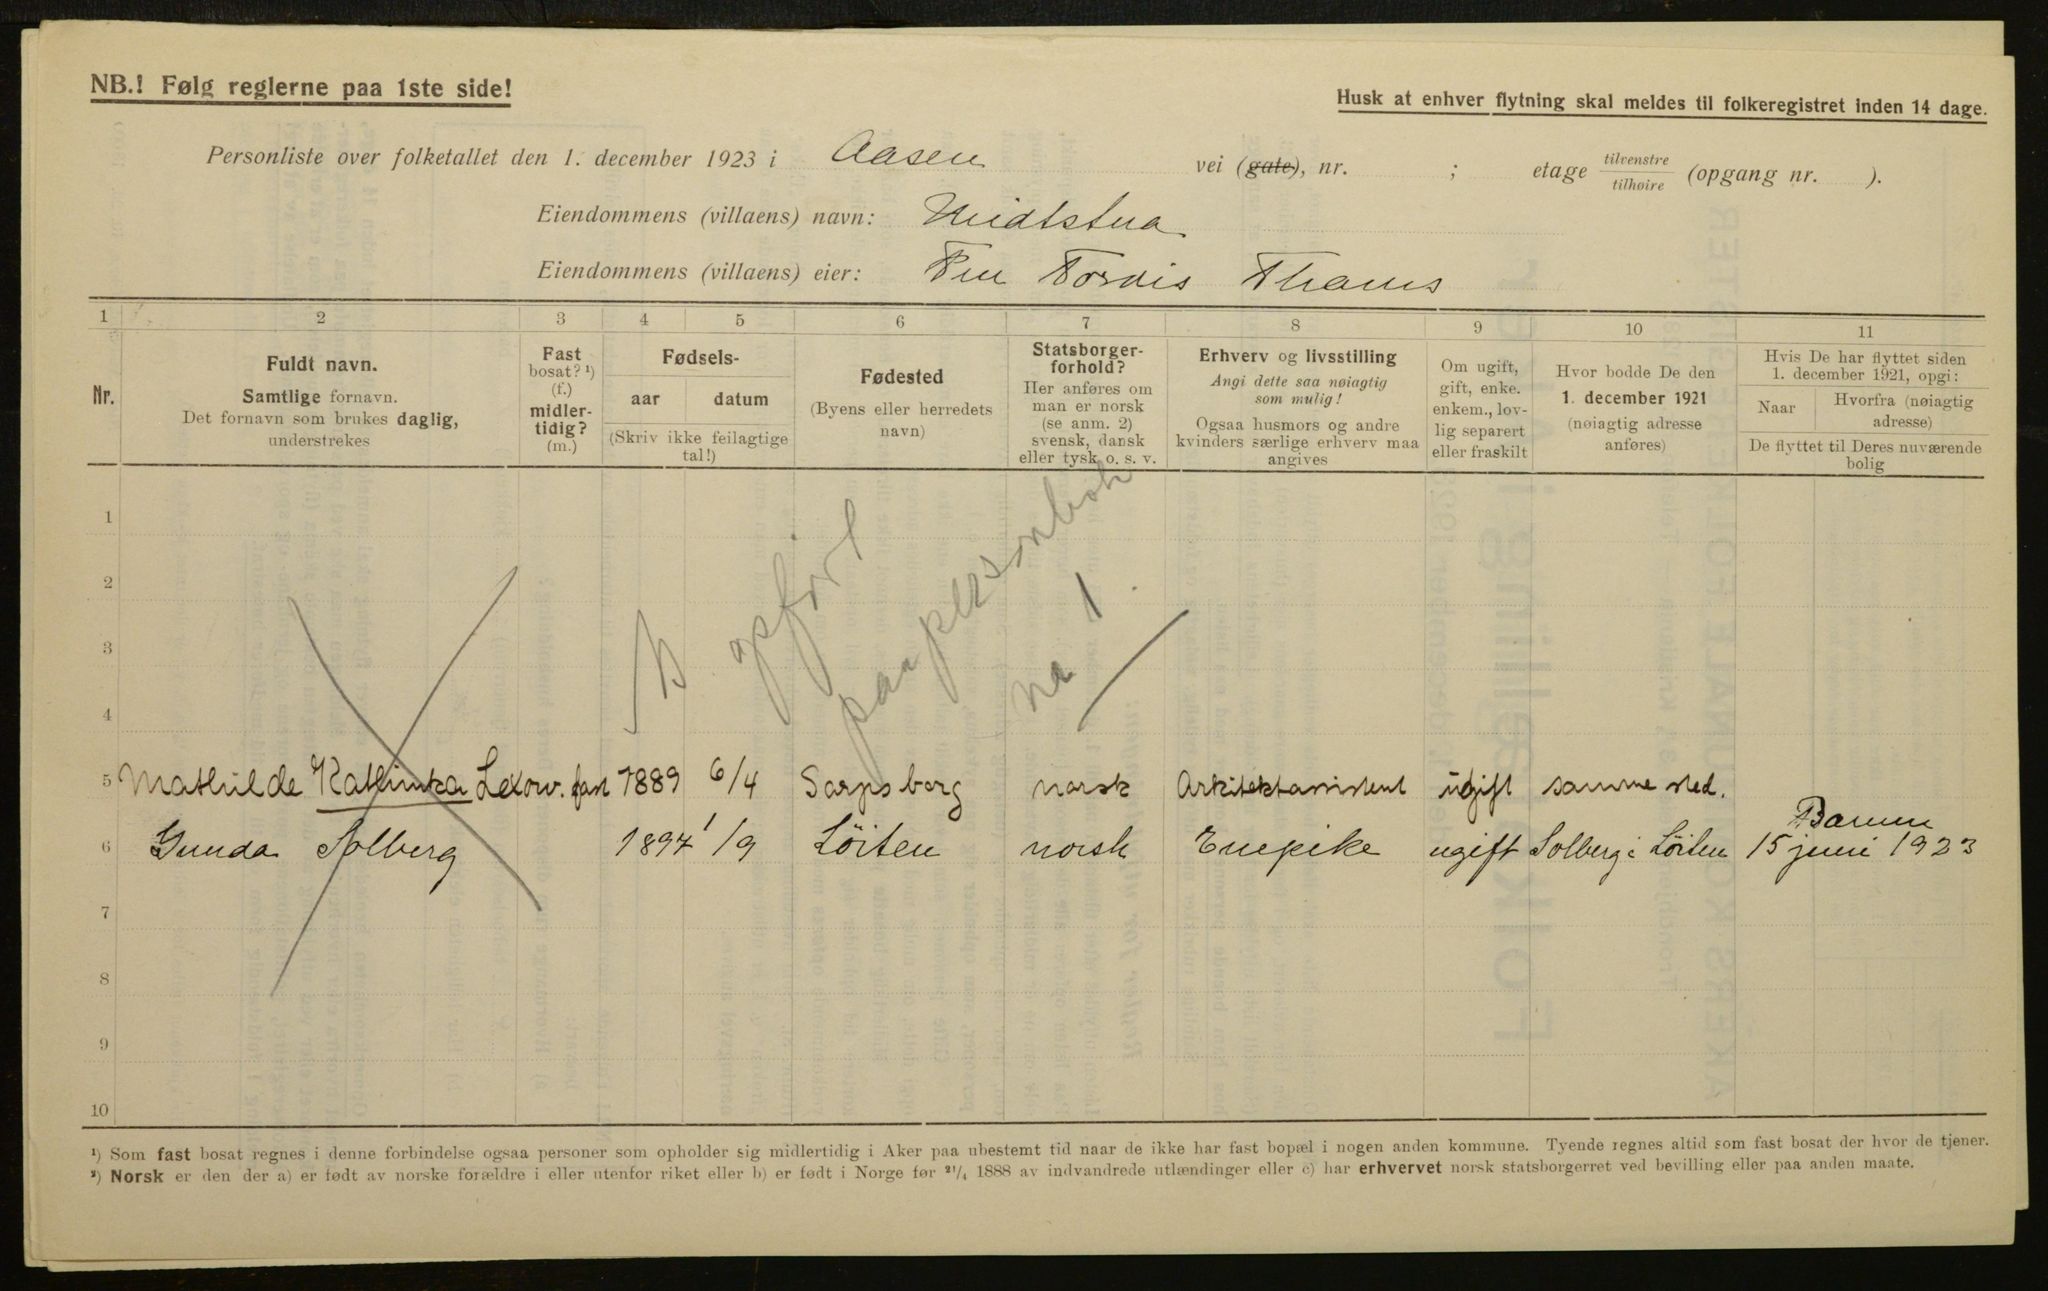 NB.! Følg reglerne paa 1ste side!
Husk at enhver flytning skal meldes til folkeregistret inden 14 dage.
Personliste over folketallet den 1. december 1923 i Aasen vei (gate), nr. ; etage tilvenstre tilhøire (opgang nr. ).
Eiendommens (villaens) navn: Midtstua
Eiendommens (villaens) eier: Fru Tordis Thams
1 2 3 4 5 6 7 8 9 10 11
Nr.
Fuldt navn.
Samtlige fornavn.
Det fornavn som brukes daglig,
understrekes
Fast
bosat? ¹)
(f.)
midler-
tidig?
(m.)
Fødsels-
aar datum
(Skriv ikke feilagtige
tal!)
Fødested
(Byens eller herredets
navn)
Statsborger-
forhold?
Her anføres om
man er norsk
(se anm. 2)
svensk, dansk
eller tysk o. s. v.
Erhverv og livsstilling
Angi dette saa nøiagtig
som mulig!
Ogsaa husmors og andre
kvinders særlige erhverv maa
angives
Om ugift,
gift, enke.
enkem., lov-
lig separert
eller fraskilt
Hvor bodde De den
1. december 1921
(nøiagtig adresse
anføres)
Hvis De har flyttet siden
1. december 1921, opgi:
Naar
Hvorfra (nøiagtig
adresse)
De flyttet til Deres nuværende
bolig
1
2
3
4
opført
paa personbok
no 1.
5 Mathilde Kathinka Lexow. fast 1889 6/4 Sarpsborg norsk Arkitektassistent ugift samme sted.
Bærum
6 Gunda Solberg 1897 1/9 Löiten norsk Enepike ugift Solberg i Löiten 15 juni 1923
7
8
9
10
¹) Som fast bosat regnes i denne forbindelse ogsaa personer som opholder sig midlertidig i Aker paa ubestemt tid naar de ikke har fast bopæl i nogen anden kommune. Tyende regnes altid som fast bosat der hvor de tjener.
²) Norsk er den der a) er født av norske forældre i eller utenfor riket eller b) er født i Norge før ²¹/₄ 1888 av indvandrede utlændinger eller c) har erhvervet norsk statsborgerret ved bevilling eller paa anden maate.